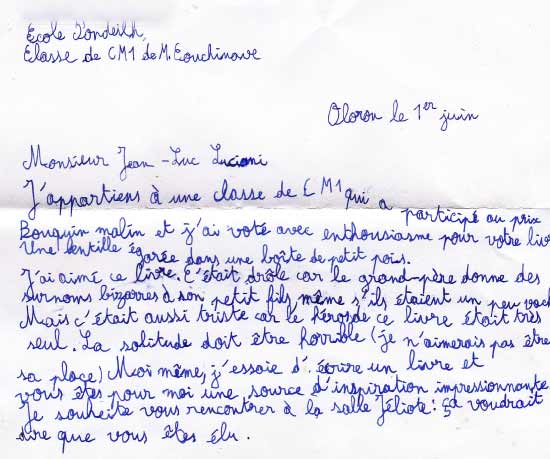 Ecole Pondeilh,
Classe de CM1 de M. Couchinave
Oloron le 1er juin
Monsieur Jean-Luc Luciani
J'appartiens à une classe de CM1 qui a participé au prix
Bouquin malin et j'ai voté avec enthousiasme pour votre liv
Une lentille égarée dans une boîte de petit pois.
J'ai aimé ce livre. C'était drôle car le grand-père donne des
surnoms bizarres à son petit fils, même s'ils étaient un peu vach
Mais c'était aussi triste car le héros de ce livre était très
seul. La solitude doit être horrible (je n'aimerais pas être
sa place) Moi même, j'essaie d'écrire un livre et
vous êtes pour moi une source d'inspiration impressionnante
Je souhaite vous rencontrer à la salle Jéliote: ça voudrait
dire que vous êtes élu.